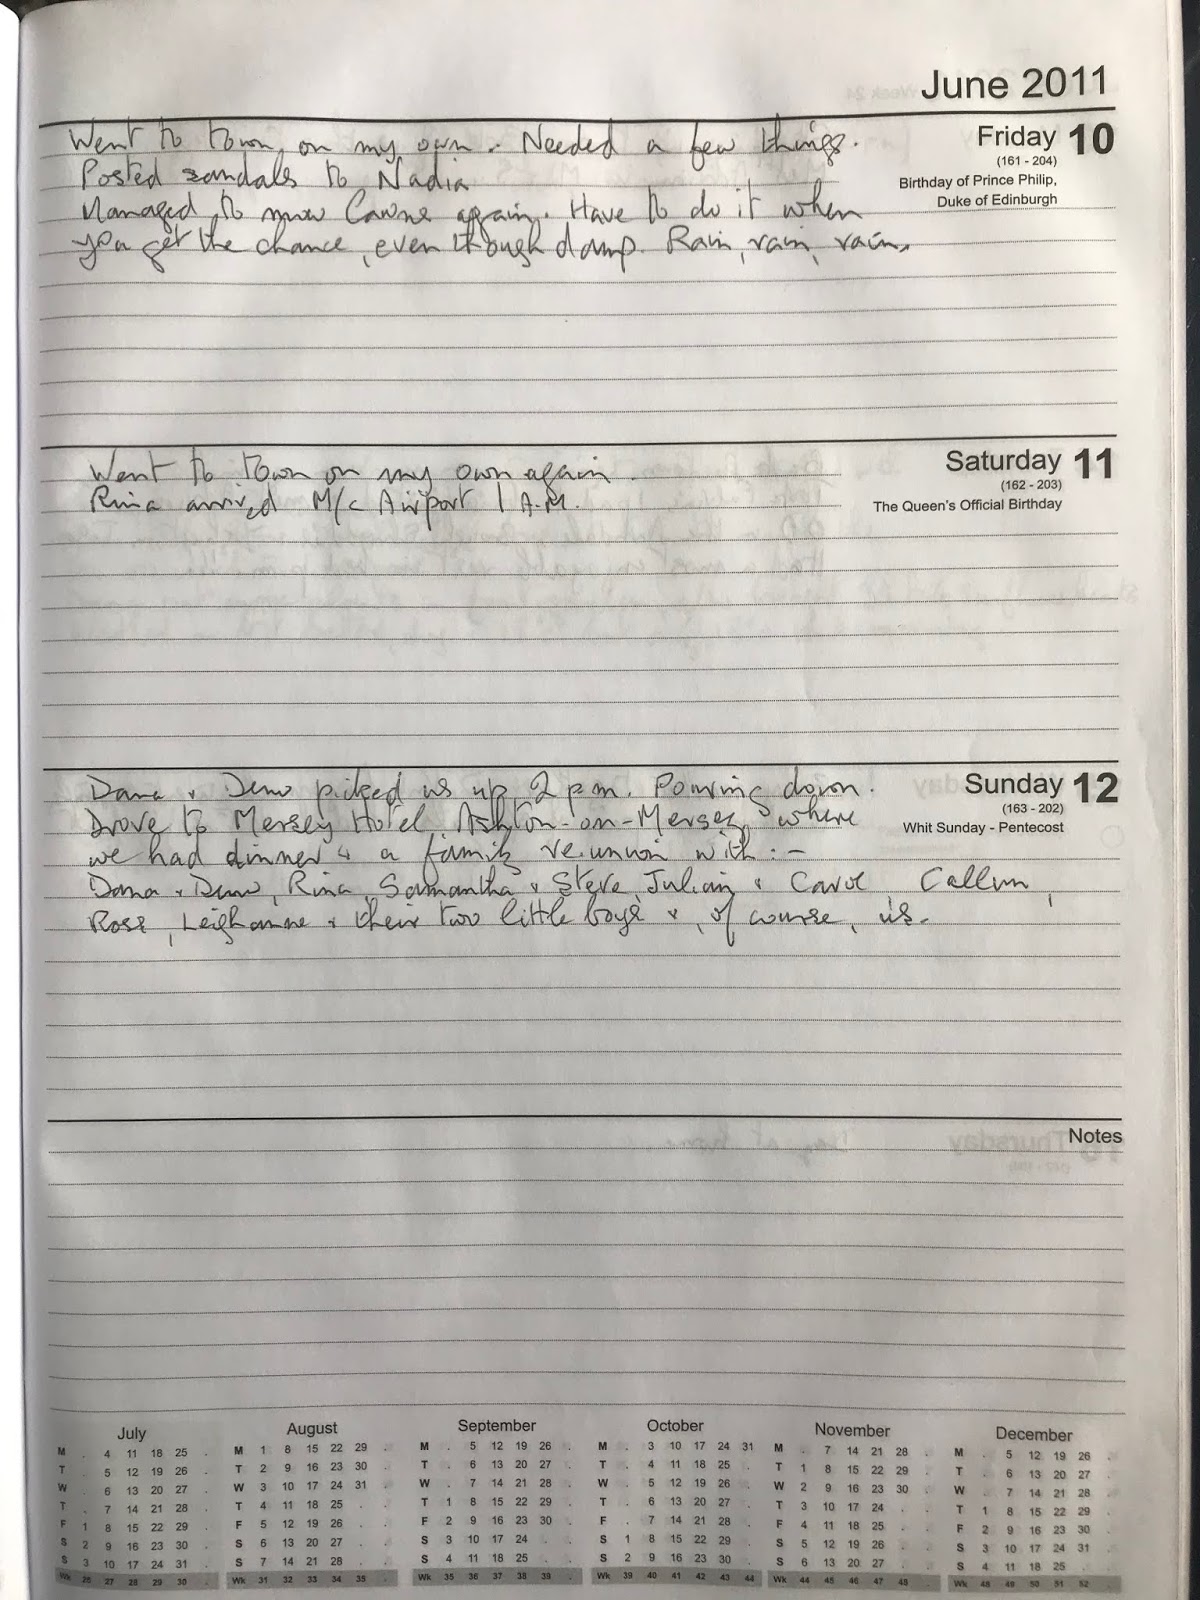 June 2011
Friday 10
(161 - 204)
Birthday of Prince Philip,
Duke of Edinburgh
Went to town, on my own. Needed a few things.
Posted sandals to Nadia
Managed to mow Lawns again. Have to do it when
you get the chance, even though damp. Rain, rain, rain.
Saturday 11
(162 - 203)
The Queen's Official Birthday
Went to town on my own again.
Rina arrived M/c Airport 1 A.M.
Sunday 12
(163 - 202)
Whit Sunday - Pentecost
Dana & picked us up 2 p.m. Pouring down.
Drove to Mersey Hotel, Ashton-on-Mersey where
we had dinner & a family re.union with:-
Dana & Rina, Samantha & Steve, Julian & Carol Callum,
Ross, Leighanne & their two little boys &, of course, us.
Notes
July August September October November December
M . 4 11 18 25 . M 1 8 15 22 29 . M . 5 12 19 26 . M . 3 10 17 24 31 M . 7 14 21 28 . M . 5 12 19 26 .
T . 5 12 19 26 . T 2 9 16 23 30 . T . 6 13 20 27 . T . 4 11 18 25 . T 1 8 15 22 29 . T . 6 13 20 27 .
W . 6 13 20 27 . W 3 10 17 24 31 . W . 7 14 21 28 . W . 5 12 19 26 . W 2 9 16 23 30 . W . 7 14 21 28 .
T . 7 14 21 28 . T 4 11 18 25 . T 1 8 15 22 29 . T . 6 13 20 27 . T 3 10 17 24 . T 1 8 15 22 29 .
F 1 8 15 22 29 . F 5 12 19 26 . F 2 9 16 23 30 . F . 7 14 21 28 . F 4 11 18 25 . F 2 9 16 23 30 .
S 2 9 16 23 30 . S 6 13 20 27 . S 3 10 17 24 . S 1 8 15 22 29 . S 5 12 19 26 . S 3 10 17 24 31 .
S 3 10 17 24 31 . S 7 14 21 28 . S 4 11 18 25 . S 2 9 16 23 30 . S 6 13 20 27 . S 4 11 18 25 .
Wk 26 27 28 29 30 . Wk 31 32 33 34 35 . Wk 35 36 37 38 39 . Wk 39 40 41 42 43 44 Wk 44 45 46 47 48 . Wk 48 49 50 51 52 .